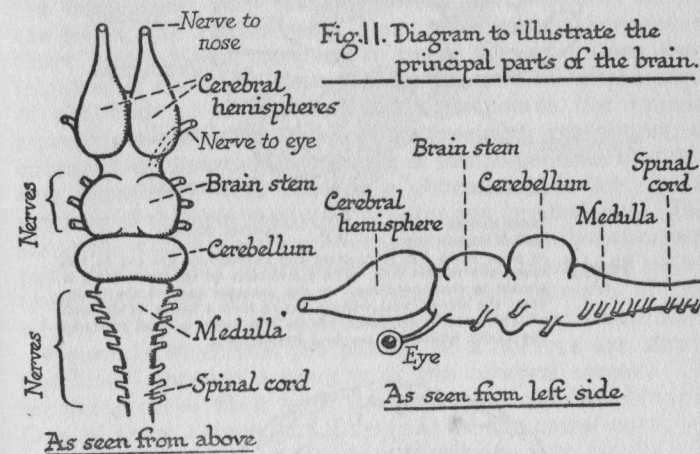 Fig. 11. Diagram to illustrate the
principal parts of the brain.
Nerve to
nose
Cerebral
hemispheres
Nerve to eye
Nerves
Brain stem
Cerebellum
Nerves
Medulla.
Spinal cord
As seen from above
Brain stem
Cerebellum
Spinal
cord
Cerebral
hemisphere
Medulla
Eye
As seen from left side